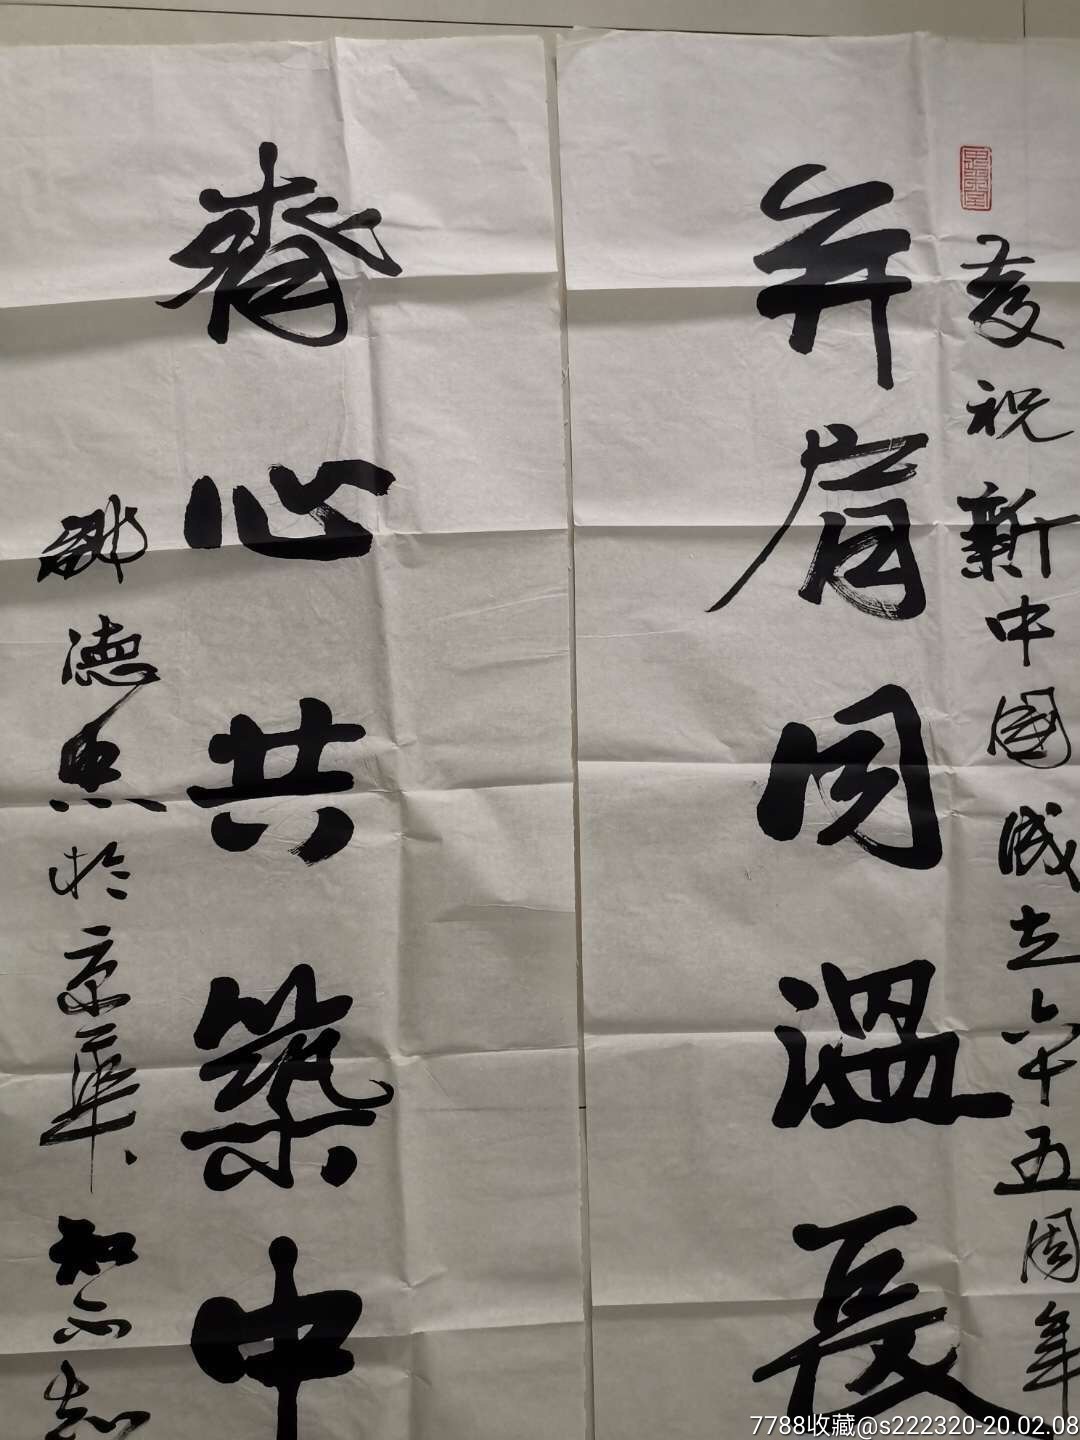 慶祝新中國成立六十五周年
并肩同温長
齊心共築中
德 於京華
7788收藏@s222320-20.02.08